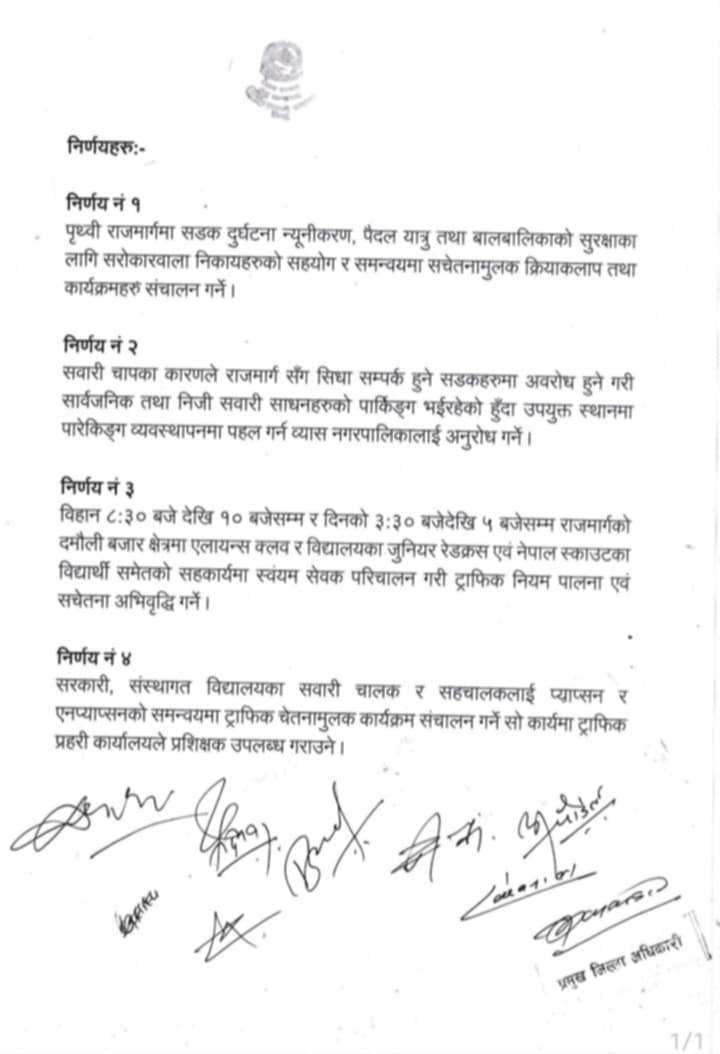 निर्णयहरु:-
निर्णय नं १
पृथ्वी राजमार्गमा सडक दुर्घटना न्यूनीकरण, पैदल यात्रु तथा बालबालिकाको सुरक्षाका
लागि सरोकारवाला निकायहरुको सहयोग र समन्वयमा सचेतनामुलक क्रियाकलाप तथा
कार्यक्रमहरु संचालन गर्ने।
निर्णय नं २
सवारी चापका कारणले राजमार्ग सँग सिधा सम्पर्क हुने सडकहरुमा अवरोध हुने गरी
सार्वजनिक तथा निजी सवारी साधनहरुको पार्किङ्ग भईरहेको हुँदा उपयुक्त स्थानमा
पारेकिङ्ग व्यवस्थापनमा पहल गर्न व्यास नगरपालिकालाई अनुरोध गर्ने।
निर्णय नं ३
विहान ८:३० बजे देखि १० बजेसम्म र दिनको ३:३० बजेदेखि ५ बजेसम्म राजमार्गको
दमौली बजार क्षेत्रमा एलायन्स क्लव र विद्यालयका जुनियर रेडक्रस एवं नेपाल स्काउटका
विद्यार्थी समेतको सहकार्यमा स्वंयम सेवक परिचालन गरी ट्राफिक नियम पालना एवं
सचेतना अभिवृद्धि गर्ने।
निर्णय नं ४
सरकारी, संस्थागत विद्यालयका सवारी चालक र सहचालकलाई प्याप्सन र
एनप्याप्सनको समन्वयमा ट्राफिक चेतनामुलक कार्यक्रम संचालन गर्ने सो कार्यमा ट्राफिक
प्रहरी कार्यालयले प्रशिक्षक उपलब्ध गराउने।
प्रमुख जिल्ला अधिकारी
1/1